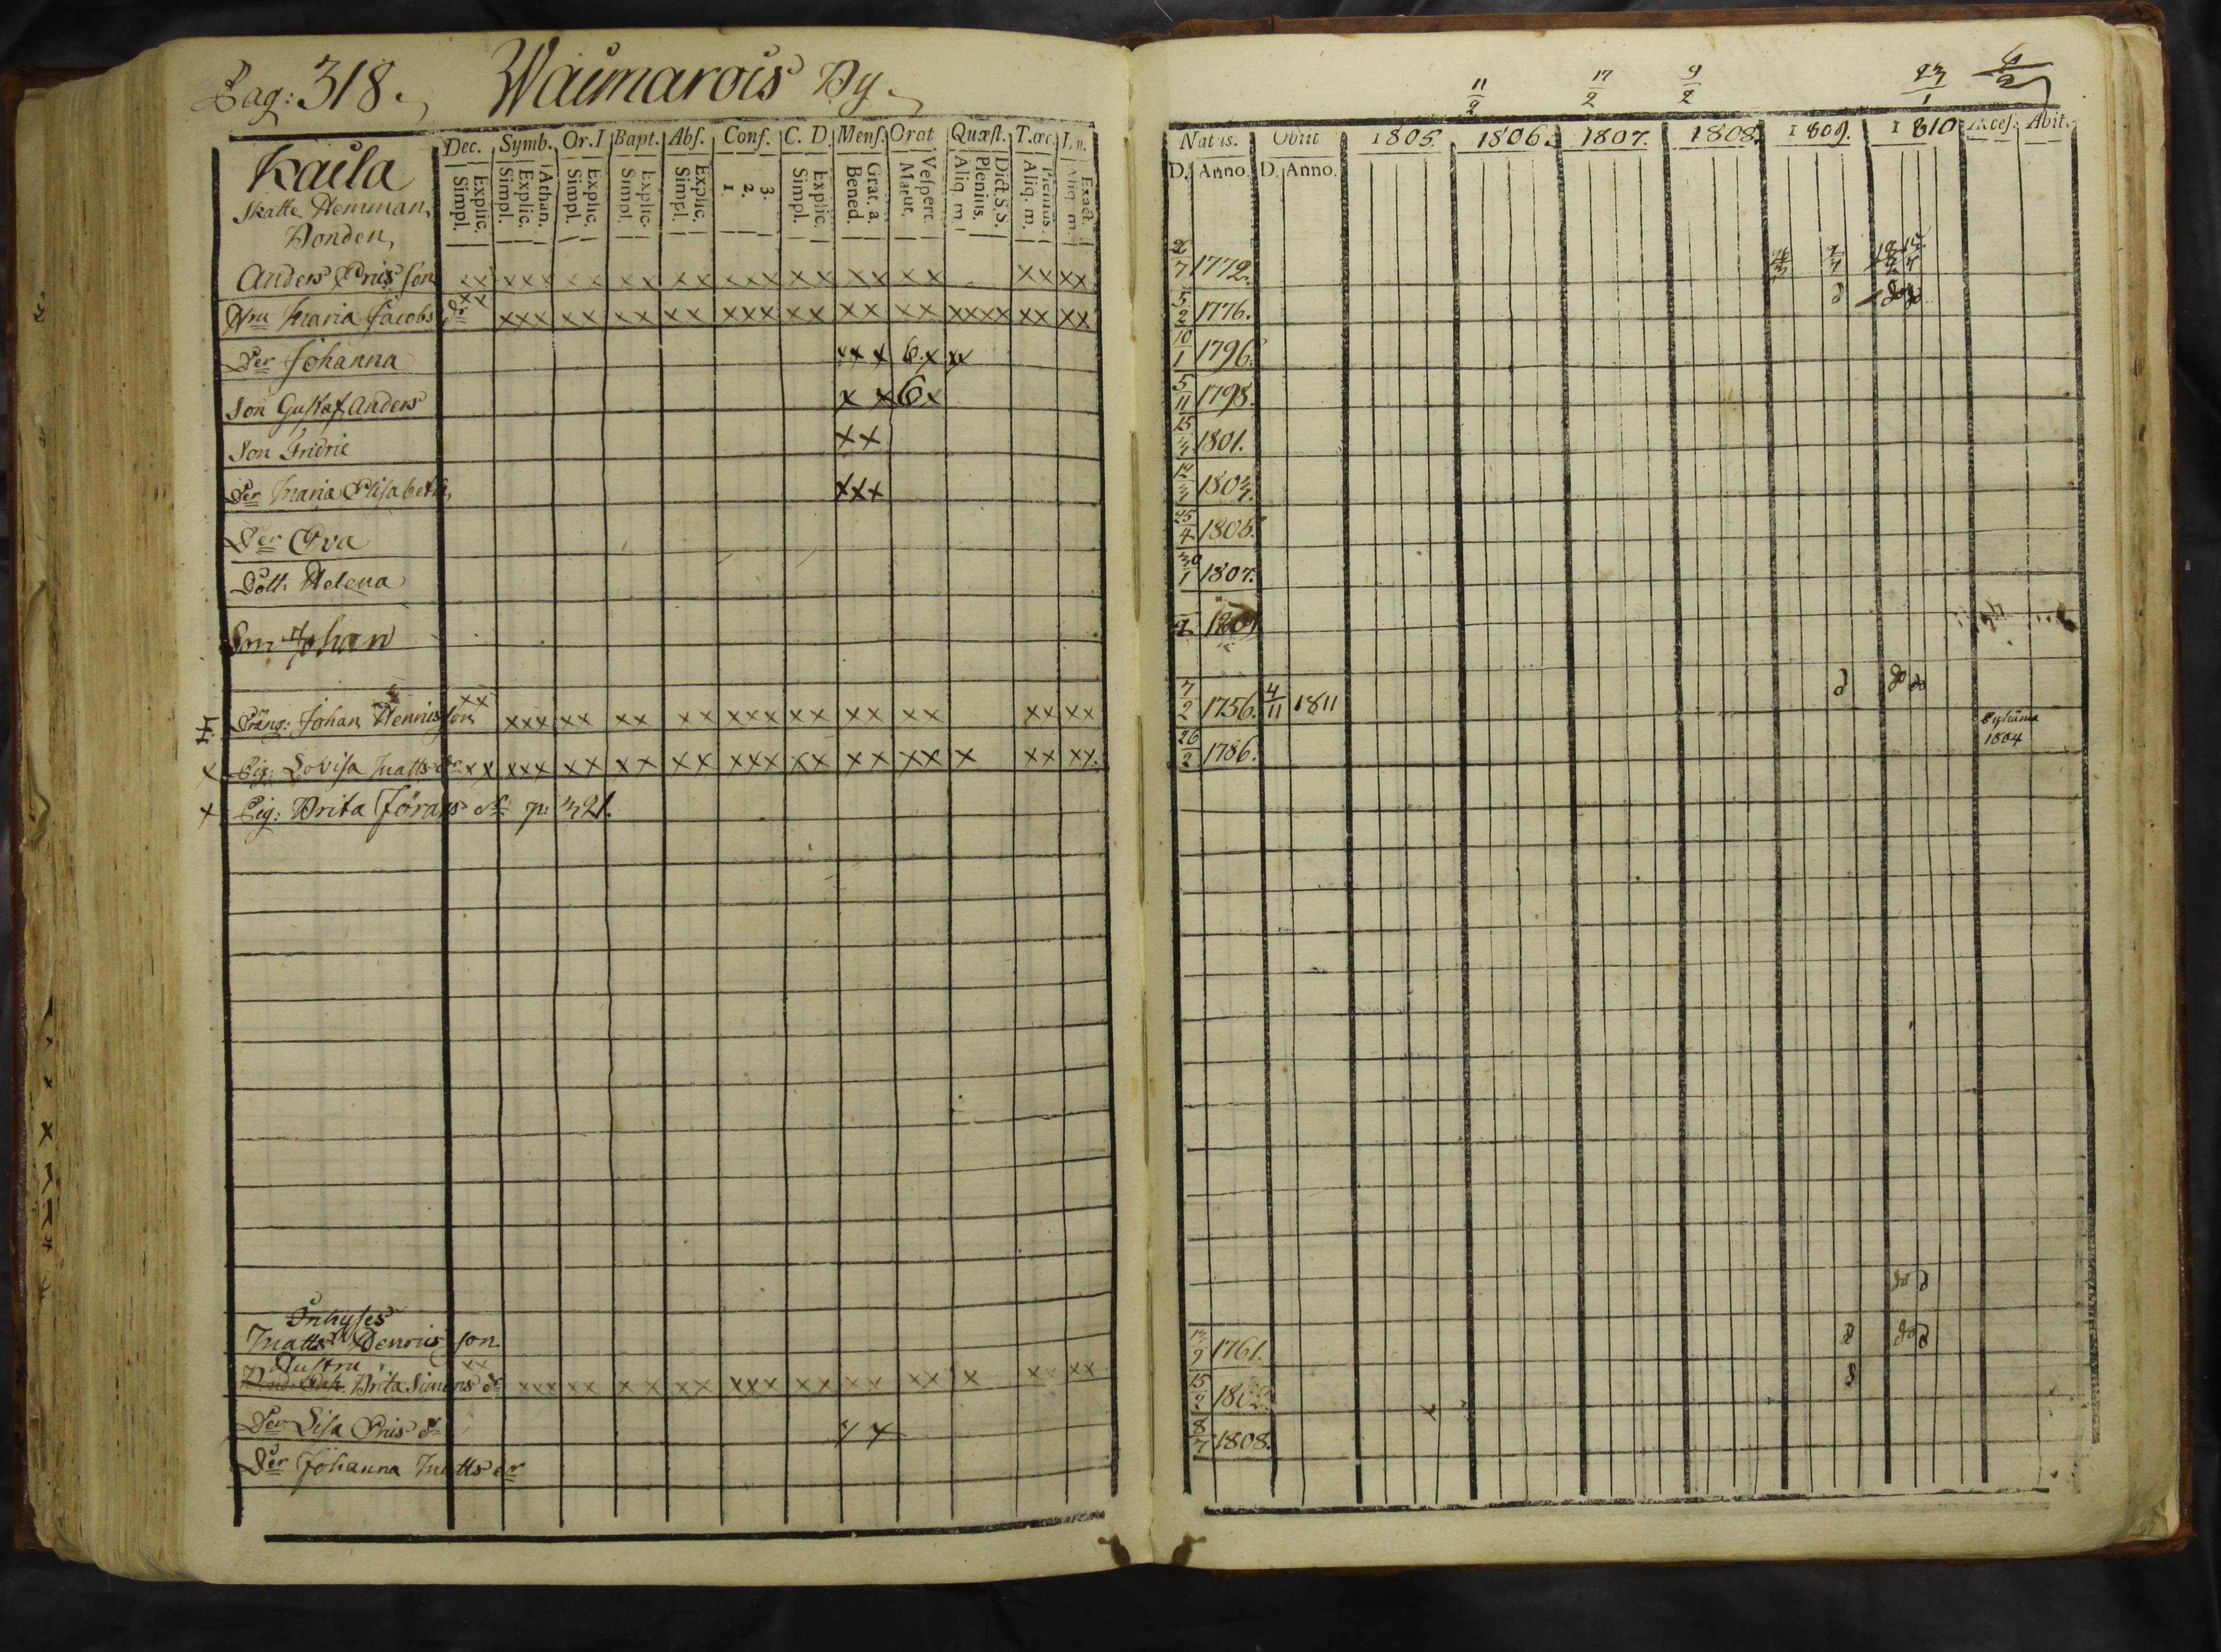 Pag: 318. Waimarois By.
Dec. Symb. Or.I Bapt. Abſ. Conf. C. D. Menſ. Orat Quæſt. T.œc.
Explic. Simpl. Athan. Explic. Simpl. Explic. Simpl. Explic. Simpl. Explic. Simpl. 3. 2. 1. Explic. Simpl. Grat. a. Bened. Veſpert. Matut. Dict.S.S. Plenius. Aliq. m. Plenius. Aliq. m. Exact. Aliq. m.
Kaila
Skatte Hemman,
Bonden,
Anders Eriis son xx xxx xx xx xx xxx xx xx xx xx xx
Hru Maria Jacobs dr xx xxx xx xx xx xxx xx xx xx xxxx xx xx
Der Johanna xxx 6.x xx
Son Gustaf Anders x x 6x
Son Fridric xx
Der Maria Elisabeth, xxx
Der Eva
Dott: Helena
Son Johan
Dräng: Johan Hennis son xx xxx xx xx xx xxx xx xx xx xx xx
x Pig: Lovisa Matts dr xx xxx xx xx xx xxx xx xx xx x xx xx
x Pig: Brita Jörans dr p: 321.
Inhyses
Matts Henriis son.
Hustru
Brita Simons dr xx xxx xx xx xx xxx xx xx xx x xx xx
Der Lisa Eriis dr x x
Der Johanna Matts dr
11/2 17/2 9/2 23/1
Natus. Obiit 1805. 1806. 1807. 1808. 1809. 1810 Acceſ. Abit.
D. Anno. D. Anno.
1772.
5/2 1776.
10/1 1796.
5/11 1798.
1801.
1803.
25/4 1805.
30/1 1807.
7/2 1756. 4/11 1811
26/2 1786. 1804
13/9 1761.
15/2 1802.
8/7 1808.